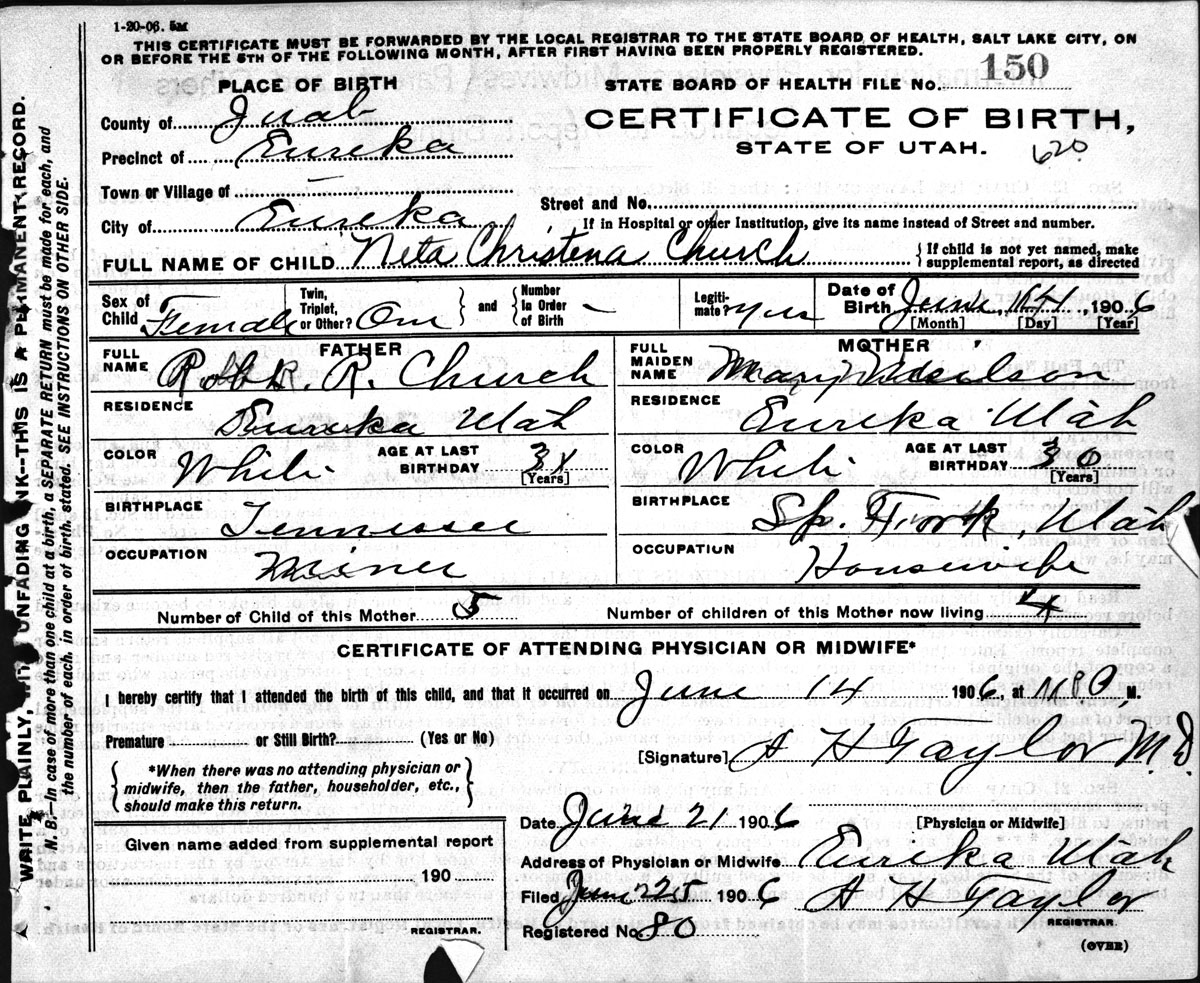 1-20-06. 5M
THIS CERTIFICATE MUST BE FORWARDED BY THE LOCAL REGISTRAR TO THE STATE BOARD OF HEALTH, SALT LAKE CITY, ON
OR BEFORE THE 5TH OF THE FOLLOWING MONTH, AFTER FIRST HAVING BEEN PROPERLY REGISTERED.
WRITE PLAINLY, WITH UNFADING INK--THIS IS A PERMANENT RECORD.
N. B.—In case of more than one child at a birth, a SEPARATE RETURN must be made for each, and
the number of each, in order of birth, stated. SEE INSTRUCTIONS ON OTHER SIDE.
PLACE OF BIRTH
STATE BOARD OF HEALTH FILE No. 150
County of Juab
CERTIFICATE OF BIRTH,
Precinct of Eureka
STATE OF UTAH.
620
Town or Village of —
Street and No.
City of Eureka
If in Hospital or other Institution, give its name instead of Street and number.
FULL NAME OF CHILD Neta Christena Church
{ If child is not yet named, make
supplemental report, as directed
Sex of Child Female
Twin, Triplet, or Other? One } and { Number in Order of Birth -
Legiti- mate? yes
Date of Birth June, 14, 1906
[Month] [Day] [Year]
FATHER
FULL NAME R. Church
RESIDENCE Eureka Utah
COLOR White
AGE AT LAST BIRTHDAY
[Years]
BIRTHPLACE Tennessee
OCCUPATION Miner
MOTHER
FULL MAIDEN NAME Mary
RESIDENCE Eureka Utah
COLOR White
AGE AT LAST BIRTHDAY 30
[Years]
BIRTHPLACE Sp. Fork, Utah
OCCUPATION Housewife
Number of Child of this Mother 5
Number of children of this Mother now living 4
CERTIFICATE OF ATTENDING PHYSICIAN OR MIDWIFE*
I hereby certify that I attended the birth of this child, and that it occurred on June 14 1906, at M.
Premature or Still Birth? (Yes or No)
[Signature] A H Taylor M.D.
{ *When there was no attending physician or
midwife, then the father, householder, etc.,
should make this return. }
Date June 21 1906
[Physician or Midwife]
Given name added from supplemental report
190
REGISTRAR.
Address of Physician or Midwife Eureka Utah
Filed June 25 1906 A H Taylor
REGISTRAR.
Registered No. 80
(OVER)